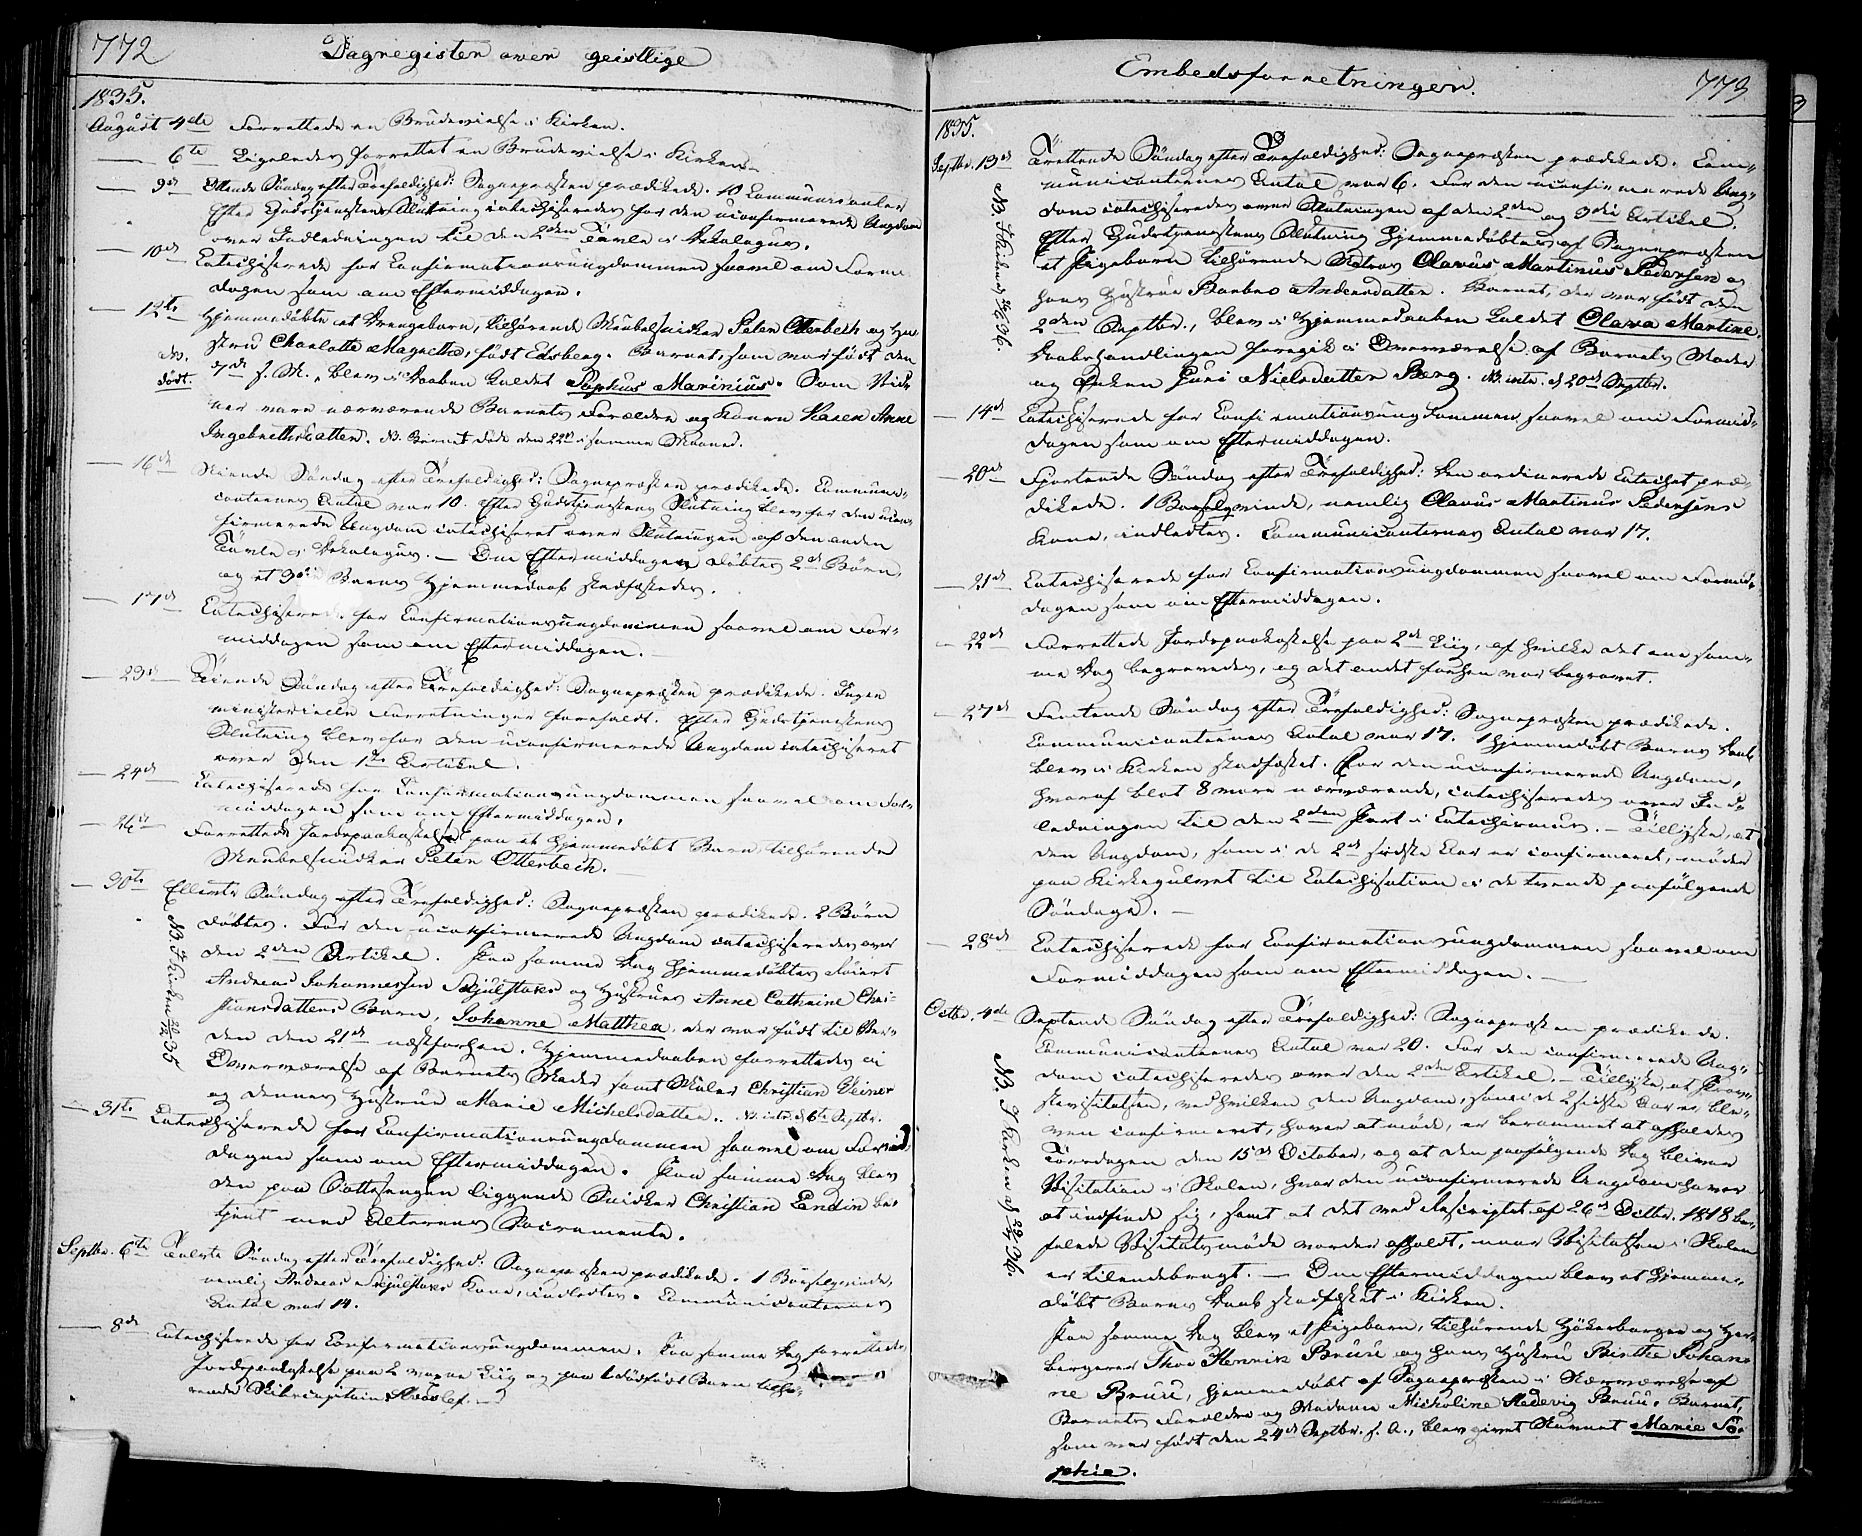 772
Dagregister over geistlige
1835.
August 4de Forrettede en Brudevielse i Kirken.
— 6te Ligeledes forrettet en Brudevielse i Kirken.
— 9de Ottende Søndag efter Trefoldighed: Sognepræsten prædikede. 10 Communicanter.
Efter Gudstjenestens Slutning catechiseredes for den uconfirmerede Ungdom
over Indledningen til den 2den Tavle i Dekalogus.
— 10de Catechiserede for Confirmationsungdommen saavel om Formid-
dagen som om Eftermiddagen.
— 12te Hjemmedøbte et Drengebarn, tilhørende Meubelsnidker Peter Otterbech og Hu-
stru Charlotte Magrethe, født Edsberg. Barnet, som var født den
NB. død. 7de f. M., blev i Daaben kaldet Sophus Marinius. Som Vid-
ner vare nærværende Barnets Forældre og Konen Karen Anne
Ingebrethsdatter. NB. Barnet døde den 22de i samme Maaned.
— 16de Niende Søndag efter Trefoldighed: Sognepræsten prædikede. Communi-
canternes Antal var 10. Efter Gudstjenestens Slutning blev for den ucon-
firmerede Ungdom catechiseret over Slutningen af den anden
Tavle i Dekalogus. — Om Eftermiddagen døbtes 2de Børn,
og et 3die Barns Hjemmedaab stadfæstedes.
— 17de Catechiserede for Confirmationsungdommen saavel om For-
middagen som om Eftermiddagen. —
— 23de Tiende Søndag efter Trefoldighed: Sognepræsten prædikede. Ingen
ministerielle Forretninger forefaldt. Efter Gudstjenestens
Slutning blev for den uconfirmerede Ungdom catechiseret
over den 1ste Artikel.
— 24de Catechiserede for Confirmationsungdommen saavel om For-
middagen som om Eftermiddagen.
— 26de Forrettede Jordspaakastelse paa et hjemmedøbt Barn, tilhørende
Meubelsnidker Peter Otterbech. —
— 30te Ellevte Søndag efter Trefoldighed: Sognepræsten prædikede. 2 Børn
døbtes. For den uconfirmerede Ungdom catechiseredes over
den 2den Artikel. Paa samme Dag hjemmedøbtes
Andreas Johannessen Skjulstads og Hustrues Anne Cathrine Chri-
stiansdatters Barn, Johanne Matthea, der var født til Ver-
den den 21de næstforhen. Hjemmedaaben forrettedes i
Overværelse af Barnets Moder samt Maler Christian Weiner
og dennes Hustrue Marie Michelsdatter. NB. intr. d. 6te Septbr.
NB. I Kirken 20/12 35
— 31te Catechiserede for Confirmationsungdommen saavel om Formid-
dagen som om Eftermiddagen. Paa samme Dag blev
den paa Sottesengen liggende Snidker Christian Lendin be-
tjent med Alterens Sacramente.
Septbr. 6te Tolvte Søndag efter Trefoldighed: Sognepræsten prædikede. 1 Barselqvinde,
nemlig Andreas Skjulstads Kone, indledtes. Communicanternes
Antal var 14.
— 8de Catechiserede for Confirmationsungdommen. Paa samme Dag forrettedes
Jordspaakastelse paa 2 voxne Liig og paa 1 dødfødt Barn tilhø-
rende Skibscapitain
Embedsforretninger.
773
1835.
Septbr. 13de Trettende Søndag efter Trefoldighed: Sognepræsten prædikede. Com-
municanternes Antal var 6. For den uconfirmerede Ung-
dom catechiseredes over Slutningen af den 2den og 3die Artikel.
Efter Gudstjenestens Slutning hjemmedøbtes af Sognepræsten
et Pigebarn tilhørende Matros Olavus Martinus Pedersen og
hans Hustrue Barbro Andersdatter. Barnet, der var født den
2den Septbr., blev i Hjemmedaaben kaldet Olava Martine.
Daabshandlingen foregik i Overværelse af Barnets Moder
og Enken Guri Nielsdatter Berg. NB. intr. d. 20de Septbr.
— 14de Catechiserede for Confirmationsungdommen saavel om Formid-
dagen som om Eftermiddagen.
— 20de Fjortende Søndag efter Trefoldighed: Den ordinerede Catechet præ-
dikede. 1 Barselqvinde, nemlig Olavus Martinus Pedersens
Kone, indledtes. Communicanternes Antal var 17.
— 21de Catechiserede for Confirmationsungdommen saavel om Formid-
dagen som om Eftermiddagen.
— 22de Forrettede Jordspaakastelse paa 2de Liig, af hvilke det ene sam-
me Dag begravedes, og det andet forhen var begravet.
— 27de Femtende Søndag efter Trefoldighed: Sognepræsten prædikede.
Communicanternes Antal var 17. 1 hjemmedøbt Barns Daab
blev i Kirken stadfæstet. For den uconfirmerede Ungdom,
hvoraf blot 8 vare nærværende, catechiseredes over Ind-
ledningen til den 2den Part i Catechismus. — Tillyste, at
den Ungdom, som i de 2de sidste Aar er confirmeret, møder
paa Kirkegulvet til Catechisation i de tvende paafølgende
Søndage. —
— 28de Catechiserede for Confirmationsungdommen saavel om
Formiddagen som om Eftermiddagen. —
Octbr. 4de Sextende Søndag efter Trefoldighed: Sognepræsten prædikede.
Communicanternes Antal var 20. For den confirmerede Ung-
dom catechiseredes over den 2den Artikel. — Tillyste, at Prov-
stevisitatsen, ved hvilken den Ungdom, som i de 2 sidste Aar er ble-
ven confirmeret, haver at møde, er berammet at afholdes
Torsdagen den 15de October, og at den paafølgende Dag bliver
Visitation i Skolen, hvor den uconfirmerede Ungdom haver
at indfinde sig, samt at det ved Rescriptet af 26de Octbr. 1818 be-
falede Visitatsmøde vorder afholdt, naar Visitatsen i Skolen
er tilendebragt. — Om Eftermiddagen blev et hjemme-
døbt Barns Daab stadfæstet i Kirken.
Paa samme Dag blev et Pigebarn, tilhørende Høkerborger og Her-
bergerer Thor Henrik Bruu og hans Hustru Birthe Johan-
ne Bruu, hjemmedøbt af Sognepræsten i Nærværelse af
Barnets Forældre og Madame Micholine Hedevig Bruu. Barnet,
som var født den 24de Septbr. s. A., blev givet Navnet Marie So-
phie.